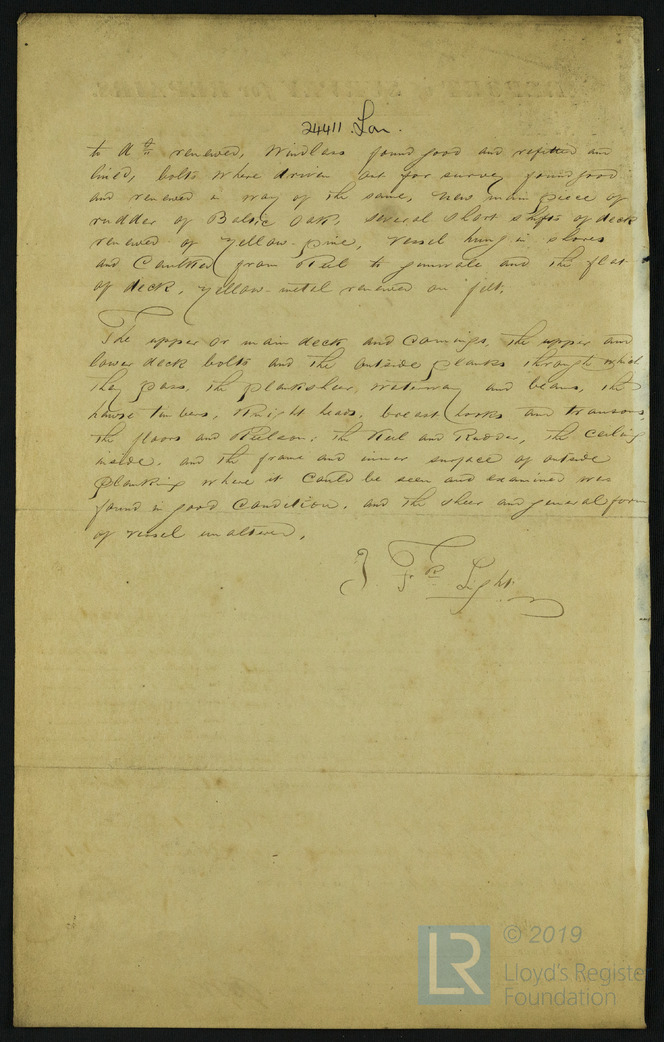 24411 Lon.
to do renewed, Windlass found good and refitted and
lined, bolts where driven out for survey found good
and renewed in way of the same, new main piece of
rudder of Baltic Oak, several short shifts of deck
renewed of yellow pine, vessel hung in shores
and Caulked from Keel to gunwale and the flat
of deck, yellow metal renewed on felt.
The upper or main deck and comings, the upper and
lower deck bolts and the outside planks through which
they pass, the plansheer, waterway and beams, the
hawse timbers, Knight heads, breast hooks and transoms
the floors and Keelson, the Keel and Rudder, the Ceiling
inside, and the frame and inner surface of outside
Planking where it could be seen and examined was
found in good Condition, and the sheer and general form
of vessel unaltered.
Light
LR © 2019
Lloyd's Register
Foundation